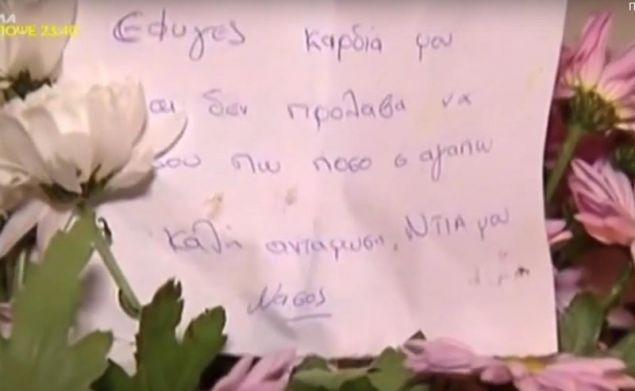 ΠΟΨΕ 23:40
Εφυγες καρδιά μου
αι δεν προλαβα να
σου πω ποσο σ αγαπω
Καλή ανταμωση, ΝΤΙΑ μου
Νασος